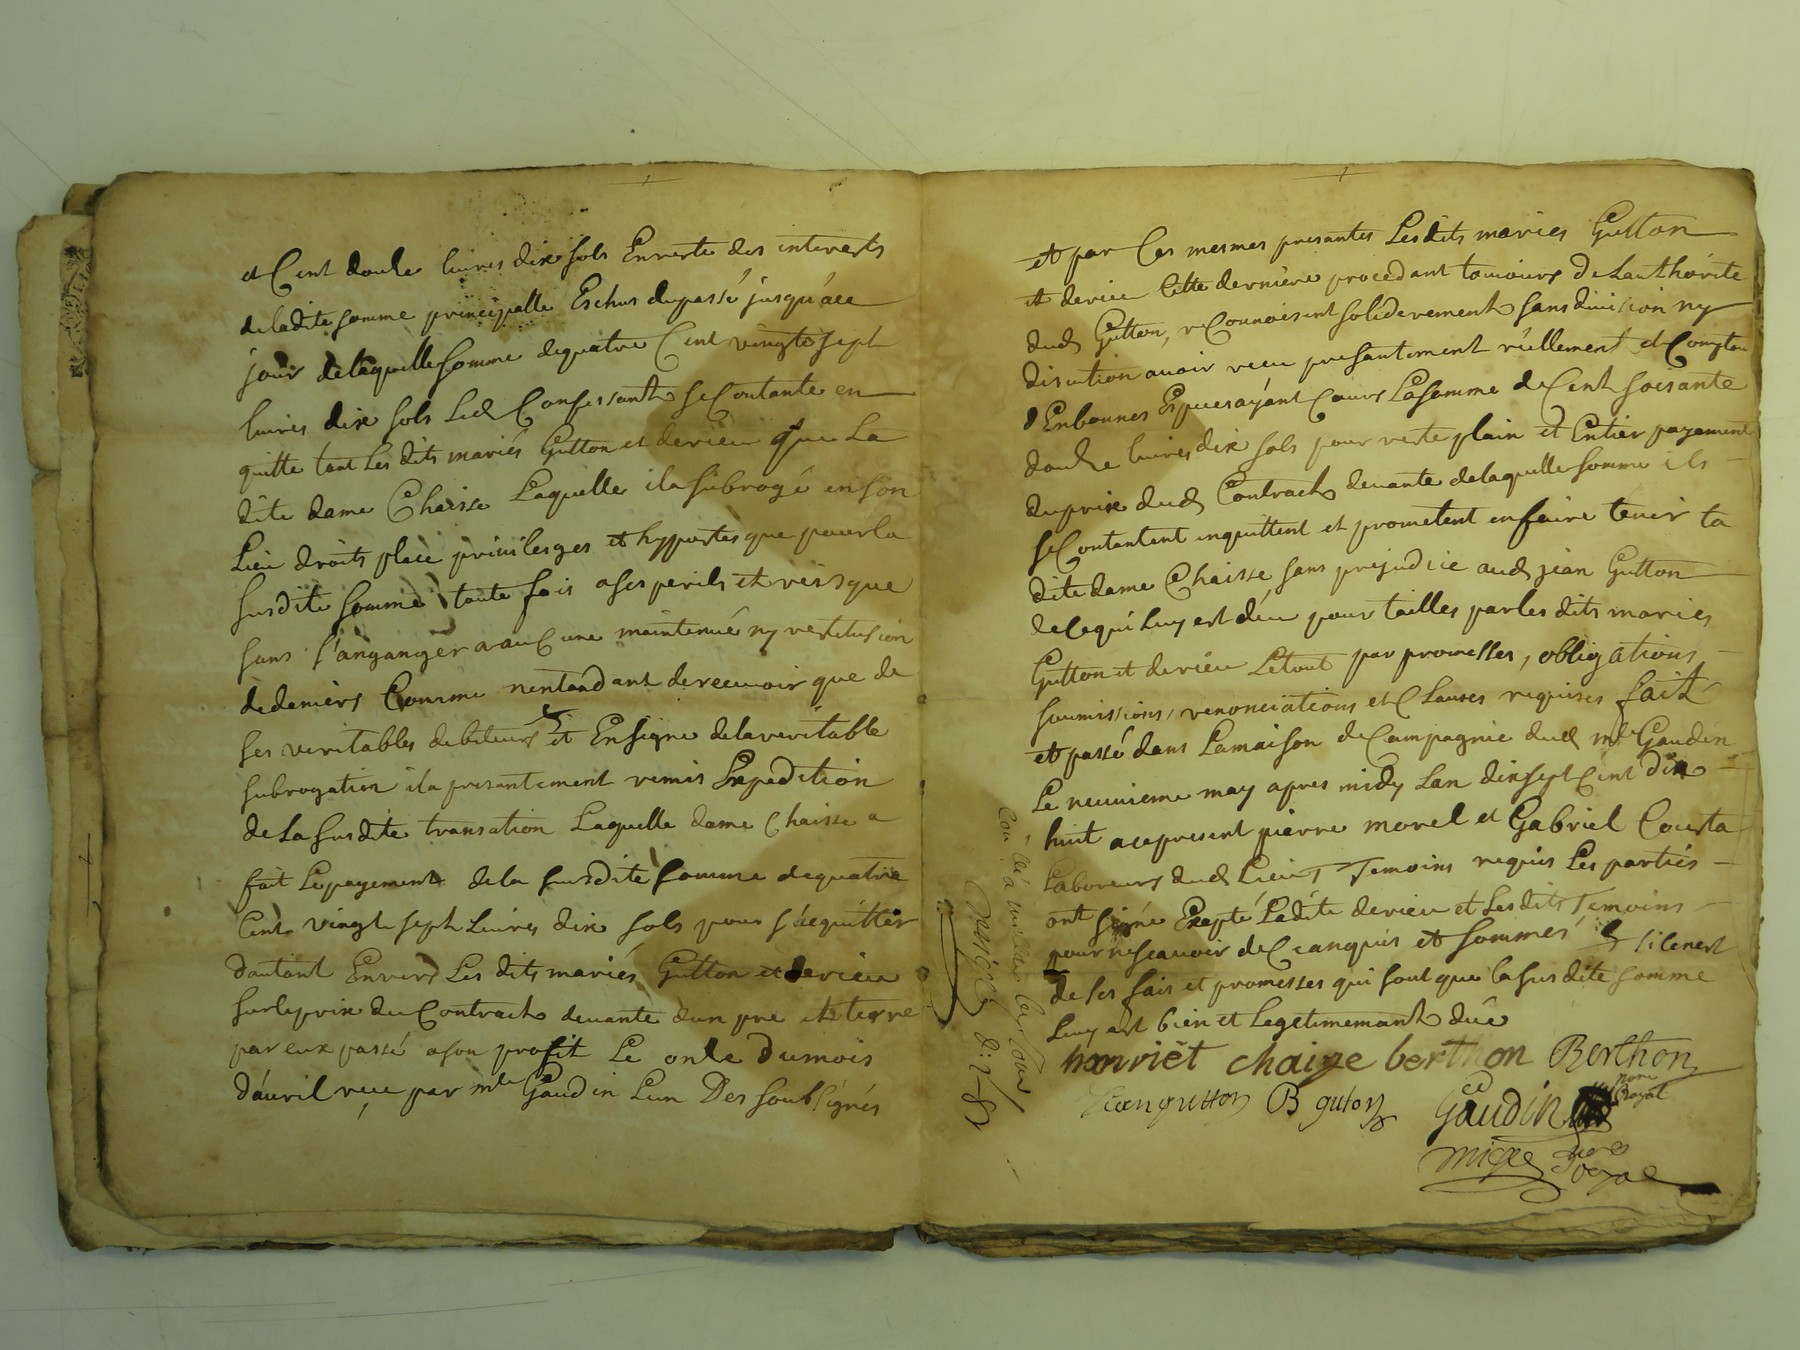 et Cent douze livres dix sols En reste des interests
deladite somme principalle Eschus dupassé jusqu'ace
jour delaquelle somme dequatre Cent vingt sept
livres dix sols Led Confessant se Contante en
quitte tant Les dits mariés Gutton et derieu que La
dite dame Chaisse Laquelle ila subrogé en son
Lieu droits place privilesges et hyppotesque pour la
susdite somme toute fois ases perils et reisque
sans s'anganger a auCune maintenué ny restitusion
dedeniers Comme nentandant de recevoir que de
ses veritables debiteurs et En signe dela veritable
subrogation ila presantement remis Lexpedition
de La susdite transation Laquelle dame Chaisse a
fait Lepayement de la susdite somme dequatre
Cent vingt sept Livres dix sols pour s'acquitter
dautant Envers Les dits mariés Gutton et derieu
sur le prix du Contract devante dun pre et terre
par eux passé a son profit Le onze Dumois
d'avril reçu par mtre Gaudin Lun Des soubsignés
et par Ces mesmes presantes Lesdits mariés Gutton
et derieu Cette derniere procedant toujours de Lauthorité
dud Gutton, reConnoisent soliderement sans division ny
discution avoir receu presantement réellement et Comptan
Enbonnes Espuces ayant Cours La somme de Cent soixante
douze livres dix sols pour reste plain et Entier payement
duprix dud Contract devante delaquelle somme ils
se Contantent inquittent et prometent en faire tenir la
dite dame Chaisse sans prejudice aud jean Gutton
de Cequi Luy est déu pour tailles par les dits mariés
Gutton et derieu Le tout par promesses, obligations
soumissions, renonciations et Clauses requises fait
et passé dans Lamaison de Campagnie dud mtre Gaudin
Le neuvieme may apres midy Lan dix sept Cent dix
huit a ce present pierre morel et Gabriel Courta
Laboreurs dud Lieu Temoins requis Les parties
ont signé Excepté Ladite derieu et Les dits Temoins
pour ne scavoir de Ce anquis et sommés si Ce nest
de ses fais et promesses qui sont que la susdite somme
Luy est bien et Legetimemant düe
hanriet chaize berthon Berthon
Jean gutton B guton Gaudin
nore Royal